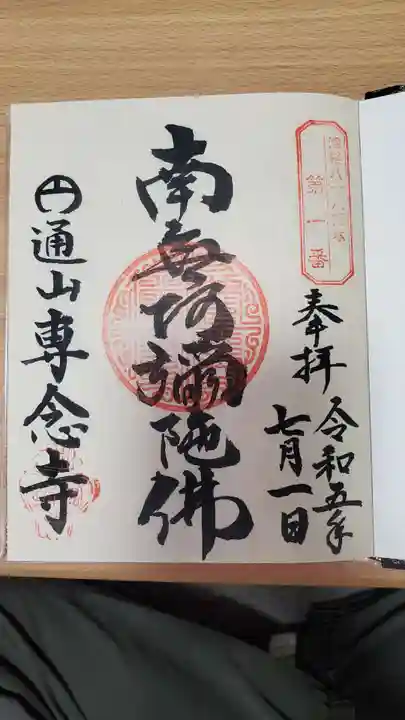 第一番
奉拝
令和五年
七月一日
南無阿彌陀佛
円通山専念寺